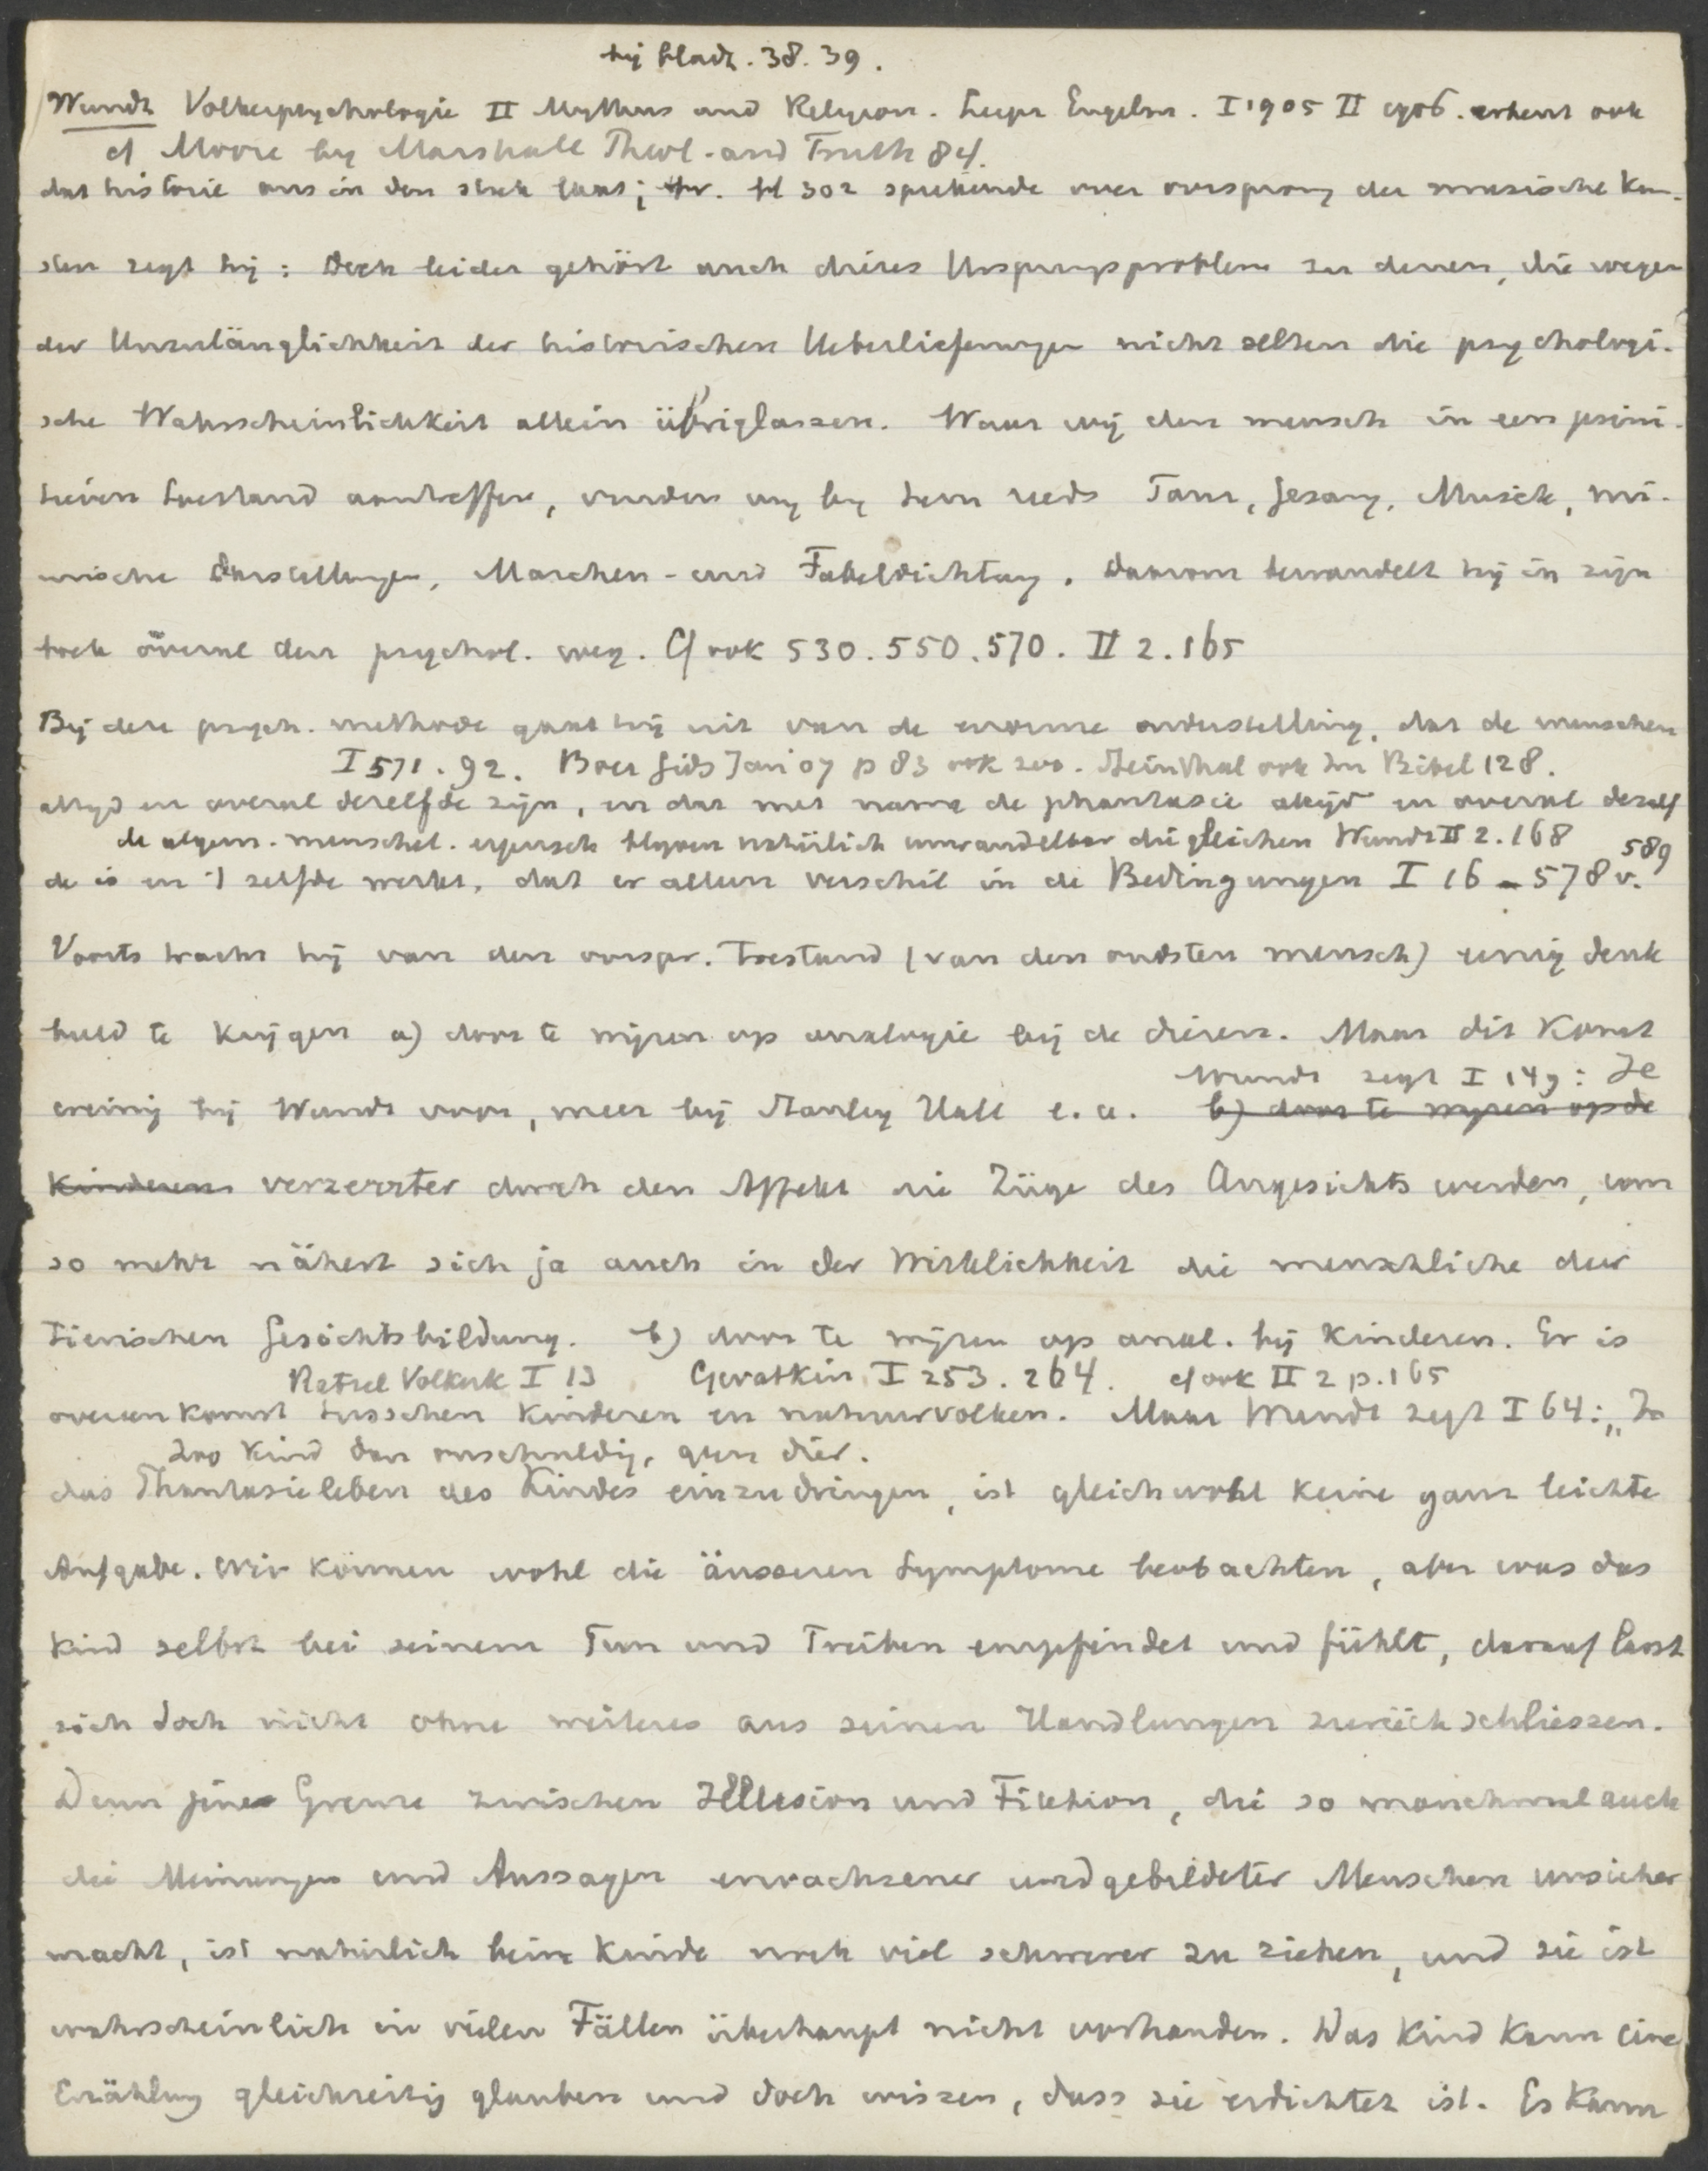 bij bladz. 38. 39.
Wundt Volkerpsychologie II Mythus und Religion. Leipz Engelm. I 1905 II 1906. erkent ook
cf Moore by Marshall Theol. and Truth 84.
dat historie ons in den steek laat; bv. bl 302 sprekende over oorsprong der musische Kun-
sten zegt hij: Doch leider gehört auch dieses Ursprungsproblem zu denen, die wegen
der Unzulänglichkeit der historischen Ueberlieferungen nicht selten die psychologi-
sche Wahrscheinlichkeit allein übriglassen. Waar wij den mensch in een primi-
tieven toestand aantreffen, vinden wij bij hem reeds Tanz, Gesang, Musik, mi-
mische Darstellungen, Marchen- und Fabeldichtung. Daarom bewandelt hij in zijn
boek overal den psychol. weg. Cf ook 530. 550. 570. II 2. 165
Bij deze psych. methode gaat hij uit van de enorme onderstelling, dat de menschen
I 571. 92. Boer Gids Jan 07 p 83 ook zoo. Steinthal ook in Bibel 128.
altijd en overal dezelfde zijn, en dat met name de phantasie altijd en overal dezelf
de algem. menschel. eigensch blijven natürlich unwandelbar die gleichen Wundt II 2. 168
de is en 't zelfde werkt, dat er alleen verschil in de Bedingungen I 16 - 578 v. 589
Voorts tracht hij van den oorspr. toestand (van den oudsten mensch) eenig denk
beeld te krijgen a) door te wijzen op analogie bij de dieren. Maar dit komt
Wundt zegt I 149: Je
weinig bij Wundt voor, meer bij Stanley Hall e. a. b) door te wijzen op de
kinderen verzerrter durch den Affekt die Züge des Angesichts werden, um
so mehr nähert sich ja auch in der Wirklichkeit die menschliche der
tierischen Gesichtsbildung. b) door te wijzen op anal. bij kinderen. Er is
Ratzel Volkerk I 13 Gevatkin I 253. 264. cf ook II 2 p. 165
overeenkomst tusschen kinderen en natuurvolken. Maar Wundt zegt I 64: „In
zoo kind dan onschuldig, geen dier.
das Phantasieleben des Kindes einzudringen, ist gleichwohl keine ganz leichte
Aufgabe. Wir können wohl die äusseren Symptome beobachten, aber was das
Kind selbst bei seinem Tun und Treiben empfindet und fühlt, darauf lässt
sich doch nicht ohne weiteres aus seinen Handlungen zurückschliessen.
Denn jene Grenze zwischen Illusion und Fiktion, die so manchmal auch
die Meinungen und Aussagen erwachsener und gebildeter Menschen unsicher
macht, ist natürlich beim Kinde noch viel schwerer zu ziehen, und sie ist
wahrscheinlich in vielen Fällen überhaupt nicht vorhanden. Das Kind kann eine
Erzählung gleichzeitig glauben und doch wissen, dass sie erdichtet ist. Es kann